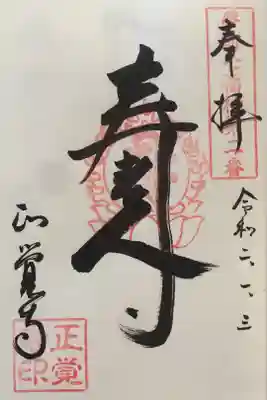 奉拝
令和六、一、三
寿
正覚寺
正覚
印